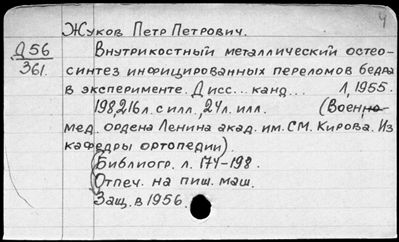 Жуков Петр Петрович.
Д56
361.
Внутрикостный металлический остео-
синтез инфицированных переломов бедра
в эксперименте. Дисс... канд... Л, 1955.
198,216л. с илл., 24л. илл. (Воен.-
мед. ордена Ленина акад. им. С.М. Кирова. Из
кафедры ортопедии).
(Библиогр. л. 174-198.
Отпеч. на пиш. маш.
Защ. в 1956.